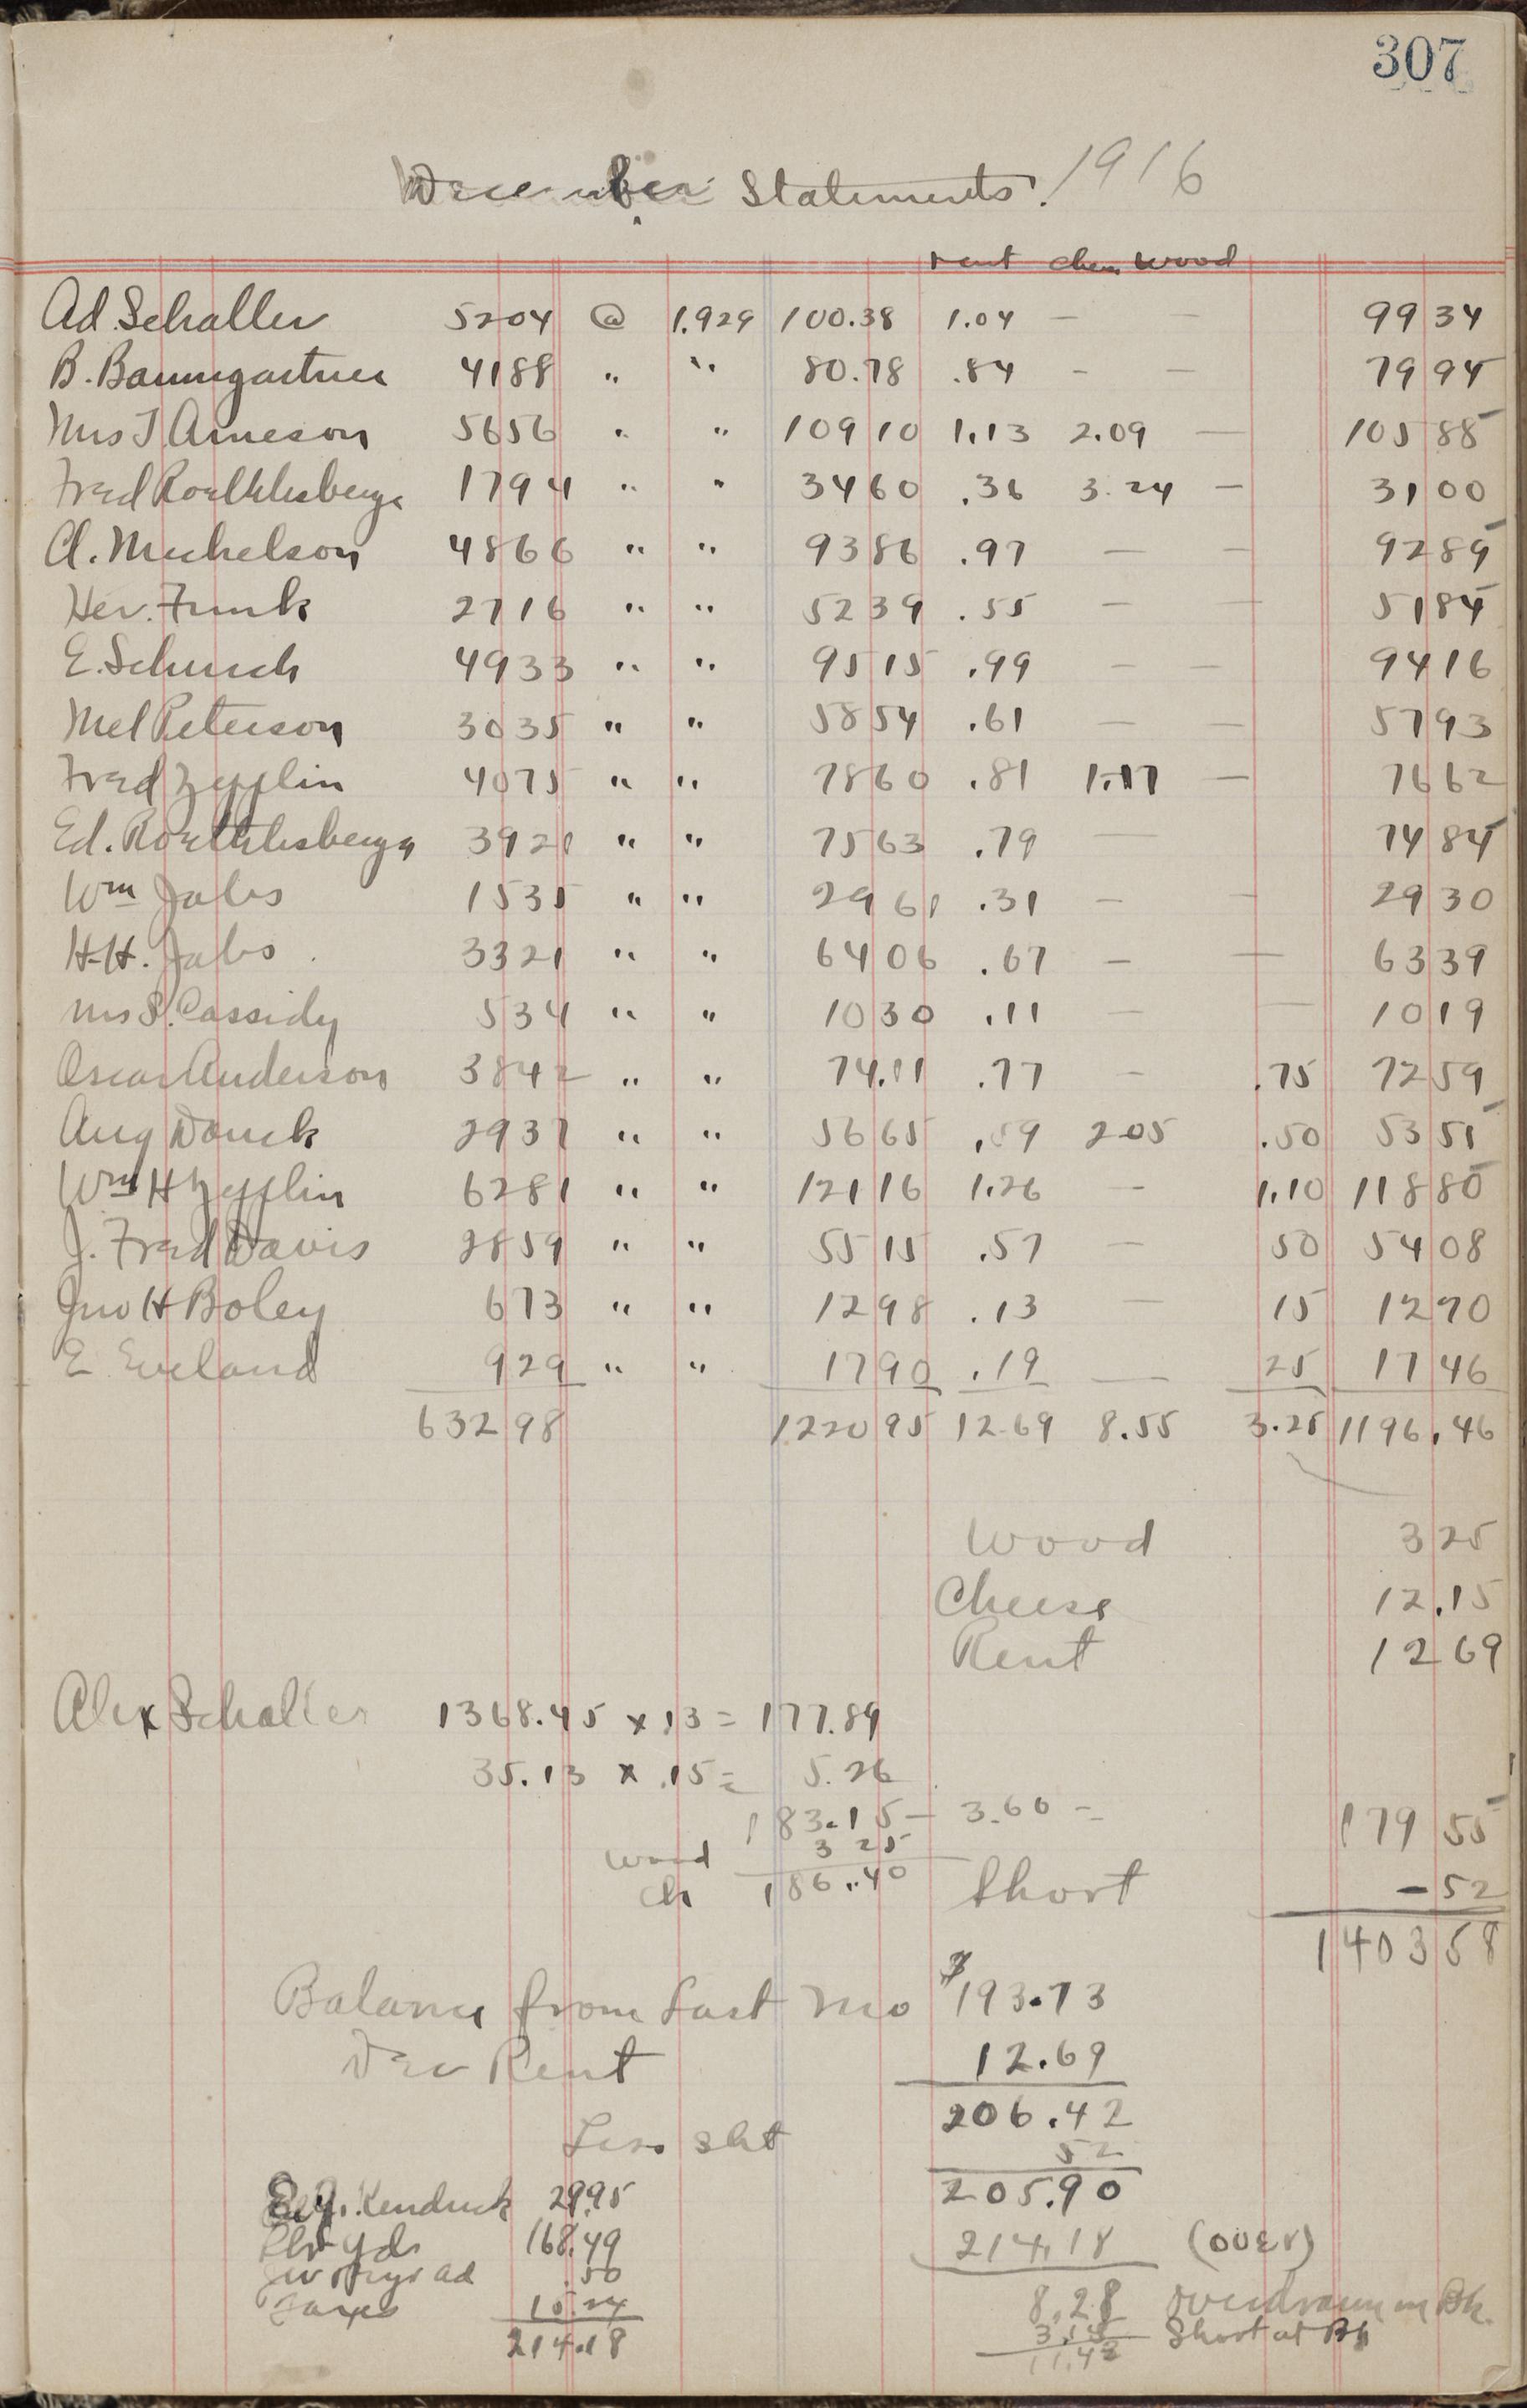 307
December Statements. 1916
rent chee wood
Ad. Schaller 5204 @ 1.929 100.38 1.04 — — 99 34
B. Baumgartner 4188 " " 80.78 .84 - — 79 94
Mrs T Arneson 5656 " " 109 10 1.13 2.09 — 105 88
Fred Roethlisberger 1794 " " 34 60 .36 3.24 — 31 00
Cl. Michelson 4866 " " 93 86 .97 — — 92 89
Her. Funk 2716 " " 52 39 .55 — — 51 84
E. Schurch 4933 " " 95 15 .99 — — 94 16
Mel Peterson 3035 " " 58 54 .61 — — 57 93
Fred Zepplin 4075 " " 78 60 .81 1.17 — 76 62
Ed. Roethlisberger 3921 " " 75 63 .79 — 74 84
Wm Jabs 1535 " " 29 61 .31 — - 29 30
H.H. Jabs 3321 " " 64 06 .67 — — 63 39
Mrs S. Cassidy 534 " " 10 30 .11 — — 10 19
Oscar Anderson 3842 " " 74.11 .77 — .75 72 59
Aug Donck 2937 " " 56 65 .59 2 05 .50 53 51
Wm H Zepplin 6281 " " 121 16 1.26 — 1.10 118 80
J. Fred Davis 2859 " " 55 15 .57 — 50 54 08
Jno H Boley 673 " " 12 98 .13 — 15 12 70
E Eveland 929 " " 17 90 .19 — 25 17 46
632 98 1220 95 12.69 8.55 3.25 1196.46
Wood 3 25
Cheese 12.15
Rent 12 69
Alex Schaller 1368.45 x 13 = 177.89
35.13 x .15 = 5.26
183.15 — 3.60 = 179 55
wood 3 25
Ch 186.40 Short - 52
1403 58
Balance from Last Mo $193.73
Dec Rent 12.69
206.42
Less sht 52
205.90
Kendrick 29.95
168.49 214.18 (over)
ad .50
Taxes 15.24 8.28 Overdrawn in Bk.
214.18 3.15 Short at Bk
11.43